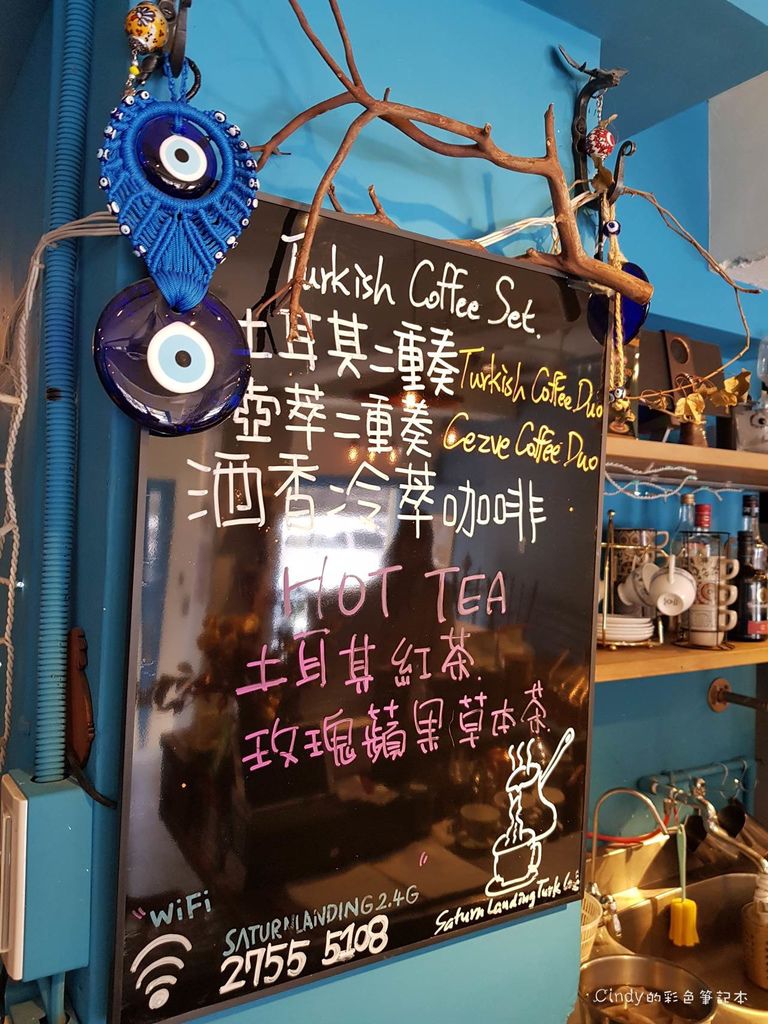 Turkish Coffee Set.
土耳其二重奏 Turkish Coffee Duo
壺萃二重奏 Cezve Coffee Duo
酒香冷萃咖啡
HOT TEA
土耳其紅茶.
玫瑰蘋果草本茶.
WiFi
SATURNLANDING2.4G
2755 5108
Saturn Landing Turk
Cindy的彩色筆記本